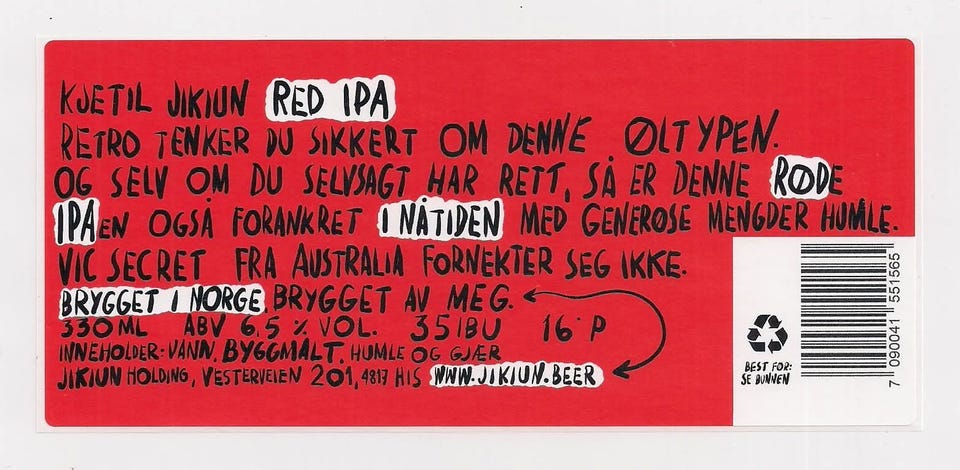 KJETIL JIKIUN RED IPA
RETRO TENKER DU SIKKERT OM DENNE ØLTYPEN.
OG SELV OM DU SELVSAGT HAR RETT, SÅ ER DENNE RØDE
IPAEN OGSÅ FORANKRET I NÅTIDEN MED GENERØSE MENGDER HUMLE.
VIC SECRET FRA AUSTRALIA FORNEKTER SEG IKKE.
BRYGGET I NORGE. BRYGGET AV MEG.
330 ML ABV 6,5 % VOL. 35 IBU 16° P
INNEHOLDER: VANN, BYGGMALT, HUMLE OG GJÆR
JIKIUN HOLDING, VESTERVEIEN 201, 4817 HIS WWW.JIKIUN.BEER
BEST FØR:
SE BUNNEN
7 090041 551565